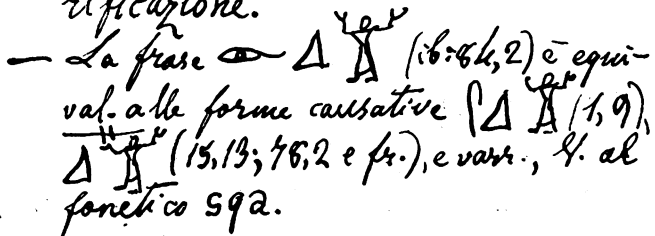 rificazione.
— La frase 𓂋 𓈎 𓀠 (ib: 84, 2) è equi-
val. alle forme causative 𓋴 𓈎 𓀠 (1, 9),
𓈎 𓀠 (15, 13; 78, 2 e fr.), e varr., V. al
fonetico sqa.